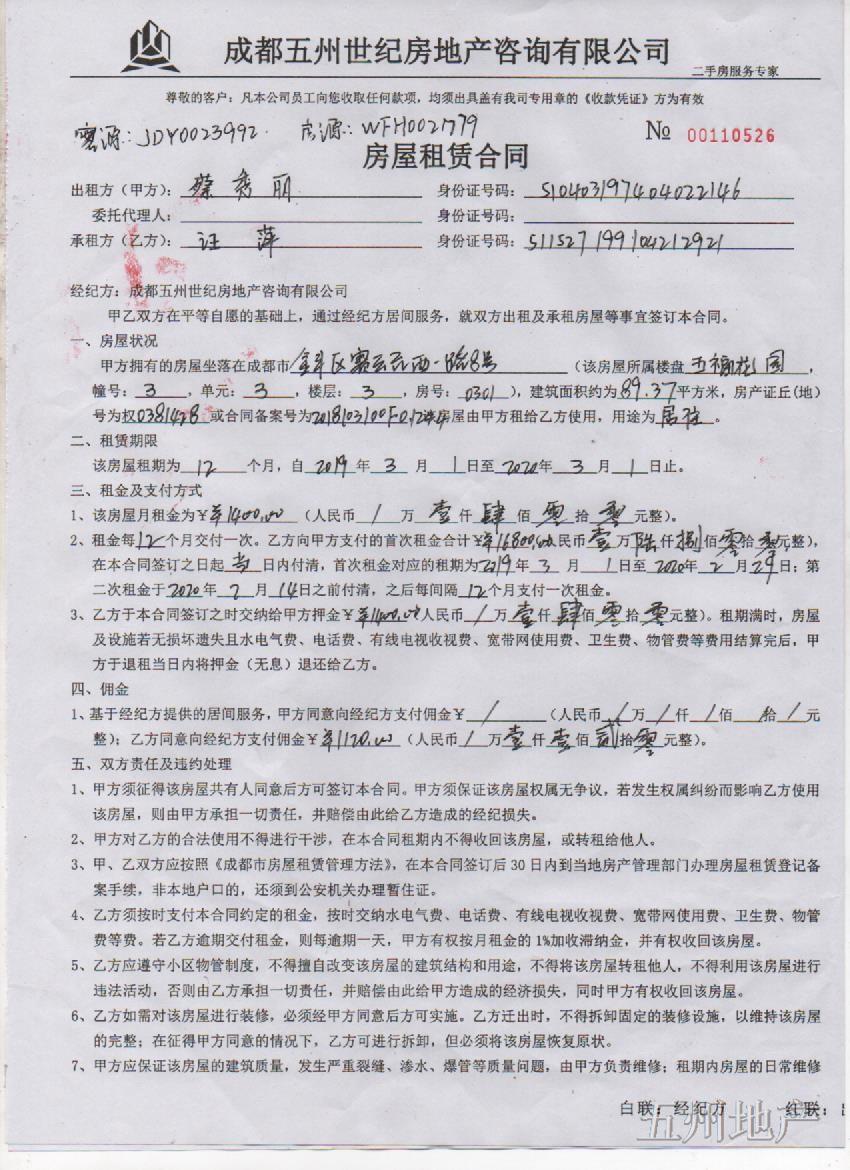 成都五州世纪房地产咨询有限公司
二手房服务专家
尊敬的客户：凡本公司员工向您收取任何款项，均须出具盖有我司专用章的《收款凭证》方为有效
客源：JDY0023992. 房源：WFH0021779 № 00110526
房屋租赁合同
出租方（甲方）：蔡秀丽 身份证号码：510403197404022146
委托代理人： 身份证号码：
承租方（乙方）：汪萍 身份证号码：511527199104212921
经纪方：成都五州世纪房地产咨询有限公司
甲乙双方在平等自愿的基础上，通过经纪方居间服务，就双方出租及承租房屋等事宜签订本合同。
一、房屋状况
甲方拥有的房屋坐落在成都市金牛区赛云台西一路8号（该房屋所属楼盘五福桂园，
幢号：3，单元：3，楼层：3，房号：0301），建筑面积约为89.37平方米，房产证丘(地)
号为权0381428或合同备案号为房屋由甲方租给乙方使用，用途为居住。
二、租赁期限
该房屋租期为12个月，自2019年3月1日至2020年3月1日止。
三、租金及支付方式
1、该房屋月租金为￥1400.00（人民币/万壹仟肆佰零拾零元整）。
2、租金每12个月交付一次。乙方向甲方支付的首次租金合计￥16800.00人民币壹万陆仟捌佰零拾零元整），
在本合同签订之日起当日内付清，首次租金对应的租期为2019年3月1日至2020年2月29日；第
二次租金于2020年2月14日之前付清，之后每间隔12个月支付一次租金。
3、乙方于本合同签订之时交纳给甲方押金￥1400.00人民币/万壹仟肆佰零拾零元整）。租期满时，房屋
及设施若无损坏遗失且水电气费、电话费、有线电视收视费、宽带网使用费、卫生费、物管费等费用结算完后，甲
方于退租当日内将押金（无息）退还给乙方。
四、佣金
1、基于经纪方提供的居间服务，甲方同意向经纪方支付佣金￥/（人民币/万/仟/佰/拾/元
整）；乙方同意向经纪方支付佣金￥1120.00（人民币/万壹仟壹佰贰拾零元整）。
五、双方责任及违约处理
1、甲方须征得该房屋共有人同意后方可签订本合同。甲方须保证该房屋权属无争议，若发生权属纠纷而影响乙方使用
该房屋，则由甲方承担一切责任，并赔偿由此给乙方造成的经纪损失。
2、甲方对乙方的合法使用不得进行干涉，在本合同租期内不得收回该房屋，或转租给他人。
3、甲、乙双方应按照《成都市房屋租赁管理方法》，在本合同签订后30日内到当地房产管理部门办理房屋租赁登记备
案手续，非本地户口的，还须到公安机关办理暂住证。
4、乙方须按时支付本合同约定的租金，按时交纳水电气费、电话费、有线电视收视费、宽带网使用费、卫生费、物管
费等费。若乙方逾期交付租金，则每逾期一天，甲方有权按月租金的1%加收滞纳金，并有权收回该房屋。
5、乙方应遵守小区物管制度，不得擅自改变该房屋的建筑结构和用途，不得将该房屋转租他人，不得利用该房屋进行
违法活动，否则由乙方承担一切责任，并赔偿由此给甲方造成的经济损失，同时甲方有权收回该房屋。
6、乙方如需对该房屋进行装修，必须经甲方同意后方可实施。乙方迁出时，不得拆卸固定的装修设施，以维持该房屋
的完整；在征得甲方同意的情况下，乙方可进行拆卸，但必须将该房屋恢复原状。
7、甲方应保证该房屋的建筑质量，发生严重裂缝、渗水、爆管等质量问题，由甲方负责维修；租期内房屋的日常维修
白联：经纪方 红联：
五州地产